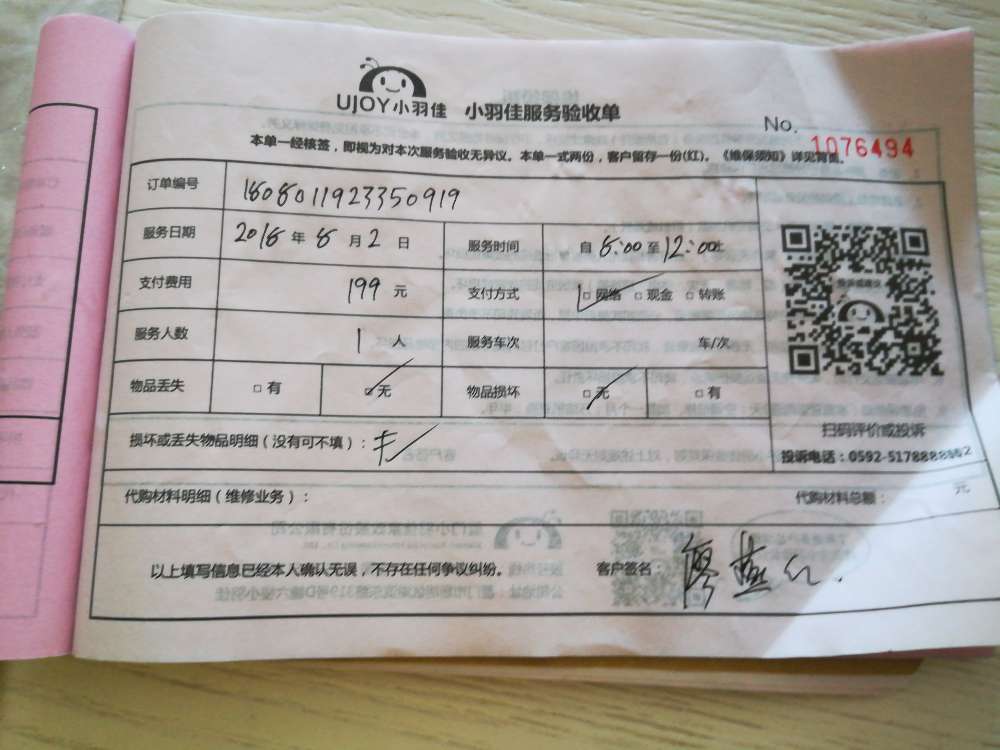 UJOY小羽佳 小羽佳服务验收单
No. 1076494
本单一经核签，即视为对本次服务验收无异议。本单一式两份，客户留存一份(红)。《维保须知》详见背面。
订单编号 1808011923350919
服务日期 2018 年 8 月 2 日 服务时间 自 8:00 至 12:00止
支付费用 199 元 支付方式 □ 网络 □ 现金 □ 转账
服务人数 1 人 服务车次 车/次
物品丢失 □ 有 □ 无 物品损坏 □ 无 □ 有
扫码评价或投诉
损坏或丢失物品明细（没有可不填）：
投诉电话：0592-5178888
代购材料明细（维修业务）： 代购材料总额： 元
以上填写信息已经本人确认无误，不存在任何争议纠纷。 客户签名： 廖燕